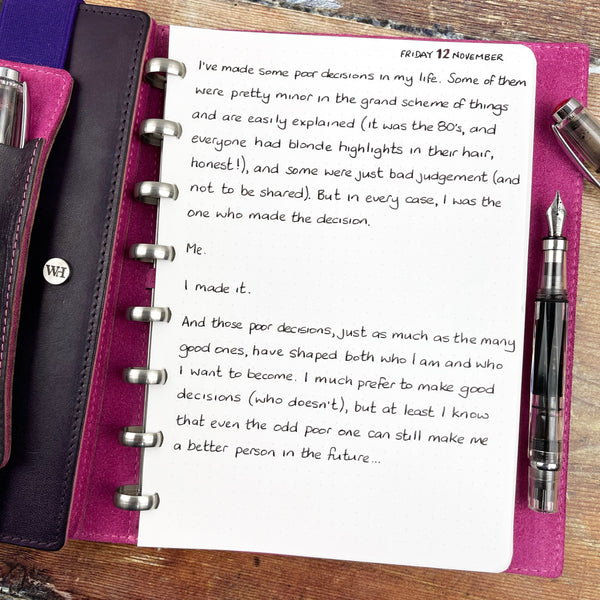 FRIDAY 12 NOVEMBER
I've made some poor decisions in my life. Some of them
were pretty minor in the grand scheme of things
and are easily explained (it was the 80's, and
everyone had blonde highlights in their hair,
honest!), and some were just bad judgement (and
not to be shared). But in every case, I was the
one who made the decision.
Me.
I made it.
And those poor decisions, just as much as the many
good ones, have shaped both who I am and who
I want to become. I much prefer to make good
decisions (who doesn't), but at least I know
that even the odd poor one can still make me
a better person in the future...
WH